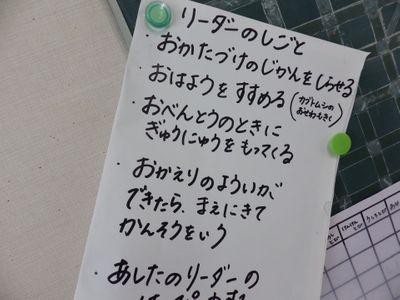 リーダーのしごと
・おかたづけのじかんをしらせる
・おはようをすすめる(カブトムシの
おせわもきく)
・おべんとうのときに
ぎゅうにゅうをもってくる
・おかえりのよういが
できたら、まえにきて
かんそうをいう
・あしたのリーダーの